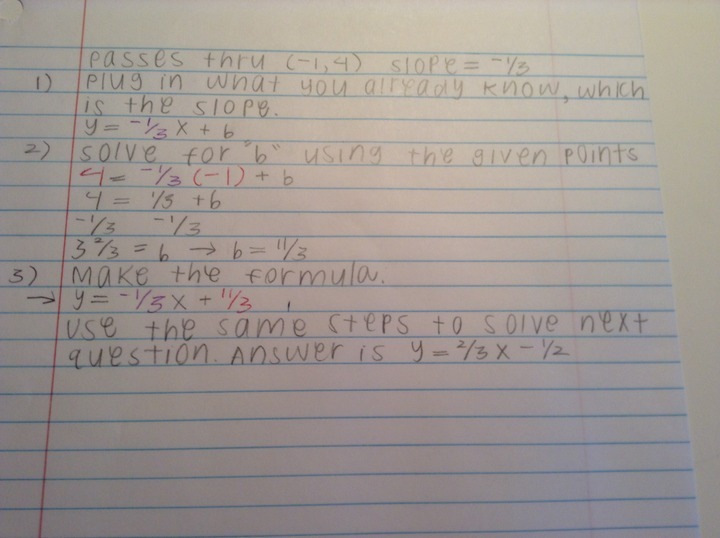 passes thru (-1,4) slope = -1/3
1) Plug in what you already know, which
is the slope.
y = -1/3 x + b
2) solve for "b" using the given points
4 = -1/3 (-1) + b
4 = 1/3 + b
-1/3 -1/3
3 2/3 = b → b = 11/3
3) Make the formula.
→ y = -1/3 x + 11/3
use the same steps to solve next
question. Answer is y = 2/3 x - 1/2